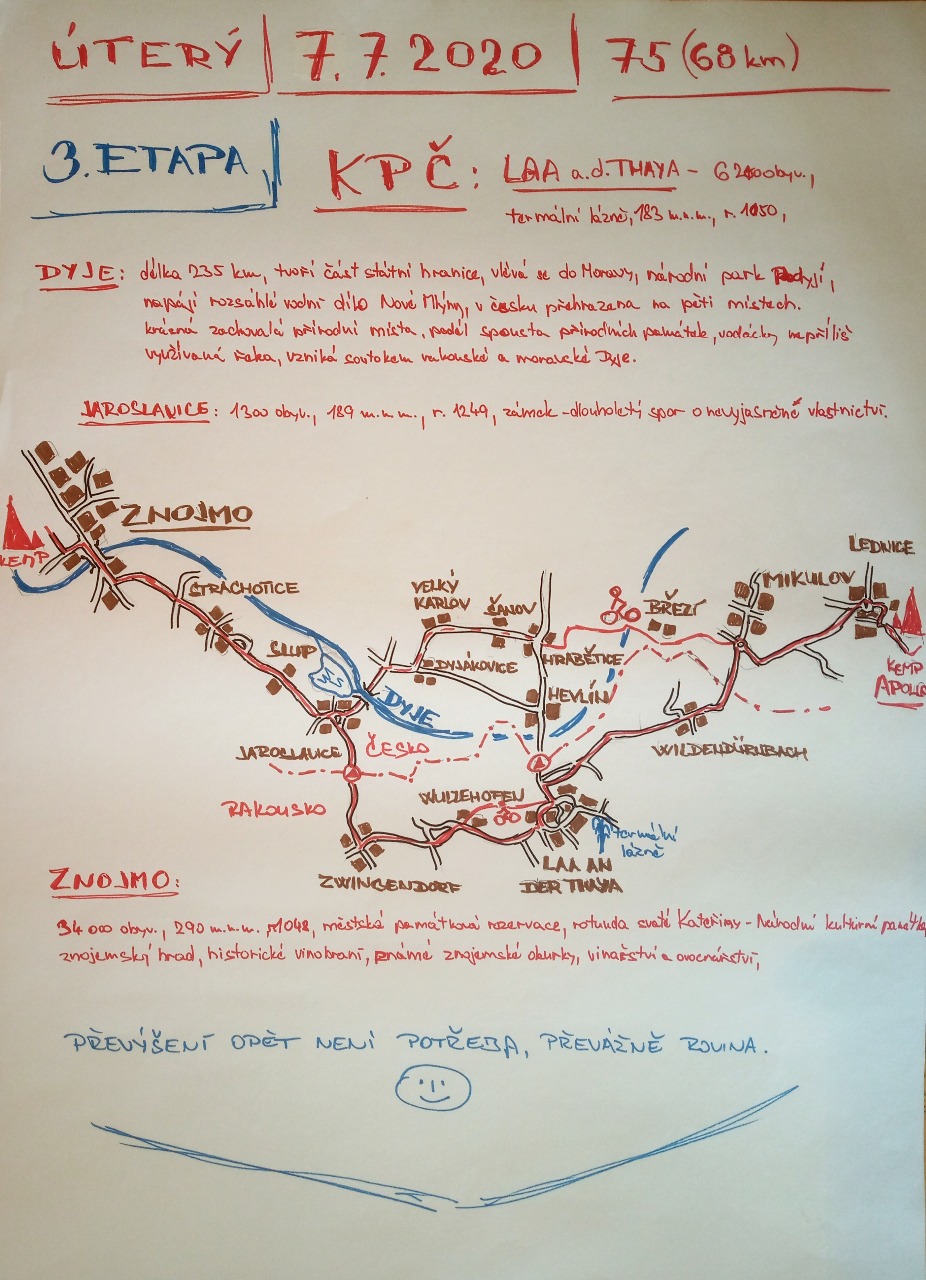 ÚTERÝ | 7.7.2020 | 75 (68 km)
3. ETAPA
KPČ: LAA a.d. THAYA - 6200 obyv.,
termální lázně, 183 m.n.m., r. 1150,
DYJE: délka 235 km, tvoří část státní hranice, vlévá se do Moravy, národní park Podyjí,
napájí rozsáhlé vodní dílo Nové Mlýny, v česku přehrazena na pěti místech.
krásná zachovalá přírodní místa, podél spousta přírodních památek, vodácky nepříliš
využívaná řeka, vzniká soutokem rakouské a moravské Dyje.
JAROSLAVICE: 1300 obyv., 189 m.n.m., r. 1249, zámek - dlouholetý spor o nevyjasněné vlastnictví.
ZNOJMO
KEMP
LEDNICE
STRACHOTICE
VELKÝ
KARLOV
ČANOV
BŘEZÍ
MIKULOV
SLUP
DYJÁKOVICE
HRABĚTICE
KEMP
APOLLO
HEVLÍN
DYJE
JAROSLAVICE
ČESKO
WILDENDÜRNBACH
RAKOUSKO
WULZEHOFEN
termální
lázně
ZWINGENDORF
LAA AN
DER THAYA
ZNOJMO:
34 000 obyv., 290 m.n.m. r1048, městská památková rezervace, rotunda svaté Kateřiny - Národní kulturní památka
znojemský hrad, historické vinobraní, známé znojemské okurky, vinařství a ovocnářství,
PŘEVÝŠENÍ OPĚT NENÍ POTŘEBA, PŘEVÁŽNĚ ROVINA.